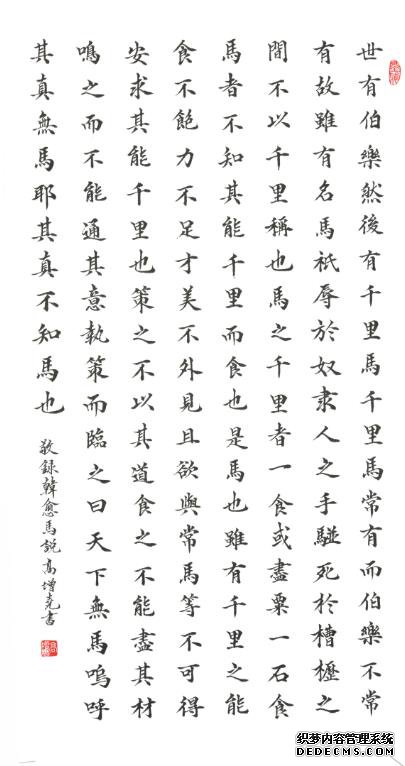 世有伯樂然後有千里馬千里馬常有而伯樂不常
有故雖有名馬祇辱於奴隶人之手駢死於槽櫪之
間不以千里稱也馬之千里者一食或盡粟一石食
馬者不知其能千里而食也是馬也雖有千里之能
食不飽力不足才美不外見且欲與常馬等不可得
安求其能千里也策之不以其道食之不能盡其材
鳴之而不能通其意執策而臨之曰天下無馬嗚呼
其真無馬耶其真不知馬也
敬録韓愈馬説高增堯書
织梦内容管理系统
DEDECMS.COM